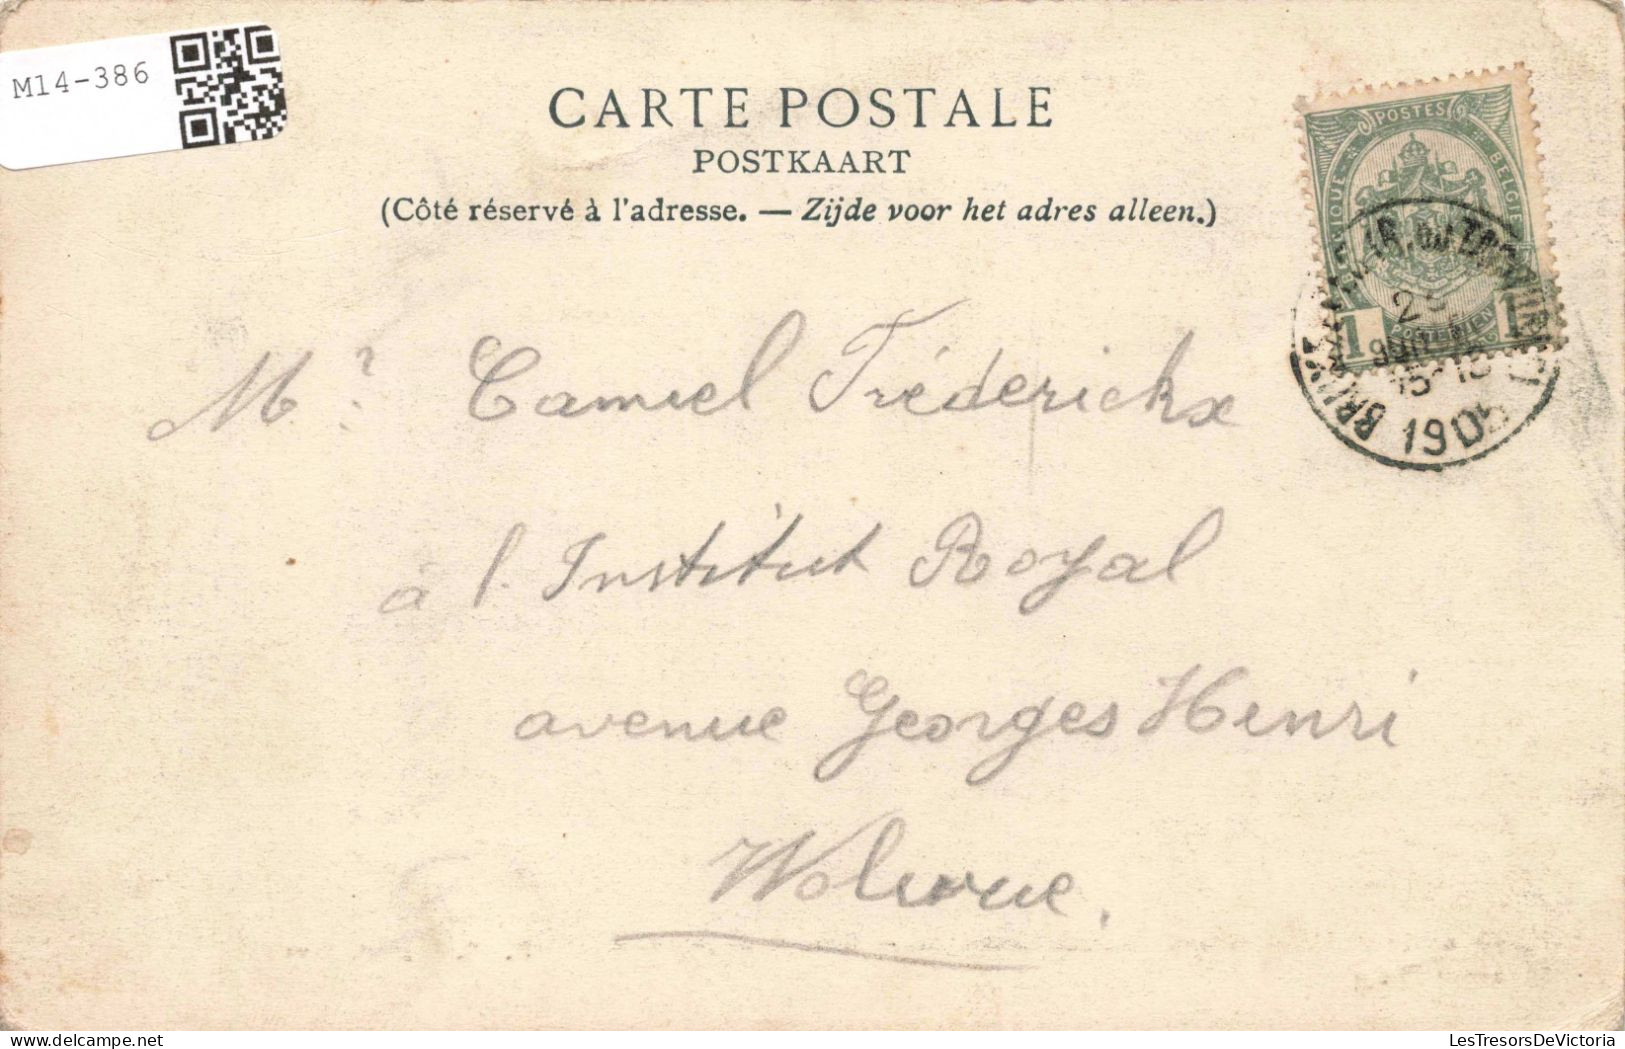 M14-386
CARTE POSTALE
POSTKAART
(Côté réservé à l'adresse. — Zijde voor het adres alleen.)
POSTES
BELGIE
BELGIQUE
1 POSTERIJEN 1
1905
Mr Camiel Fréderickx
à l'Institut Royal
avenue Georges Henri
Woluwe.
LesTresorsDeVictoria